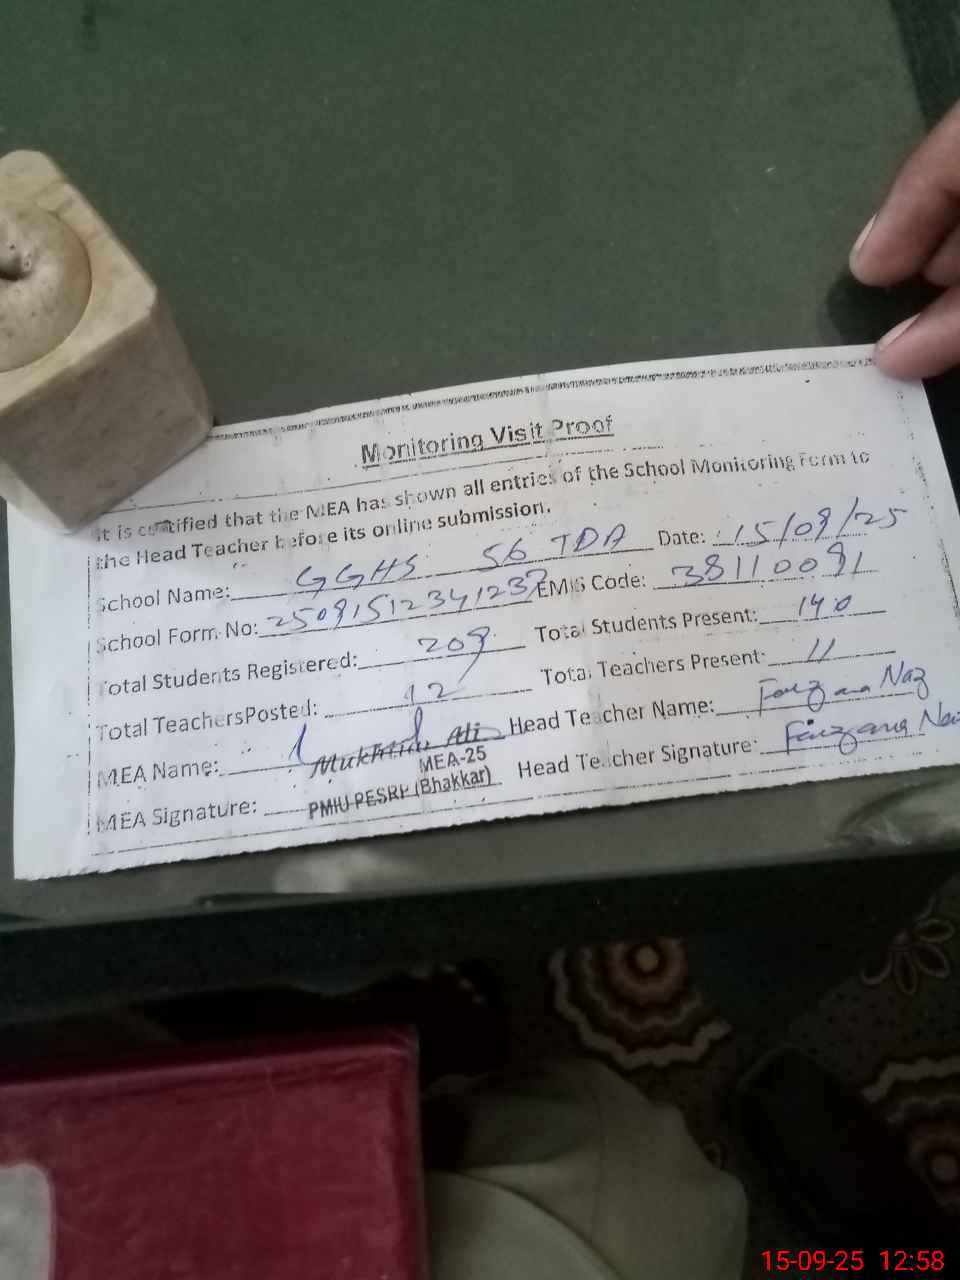 Monitoring Visit Proof
It is certified that the MEA has shown all entries of the School Monitoring Form to
the Head Teacher before its online submission.
School Name: GGHS 56 TDA Date: 15/09/25
School Form No: 2509151234123 EMIS Code: 38110091
Total Students Registered: 209 Total Students Present: 140
Total TeachersPosted: 12 Total Teachers Present: 11
MEA Name: Mukhtiar Ali Head Teacher Name: Fouzana Naz
MEA-25
MEA Signature: PMIU PESRP (Bhakkar) Head Teacher Signature: Faizana Naz
15-09-25 12:58